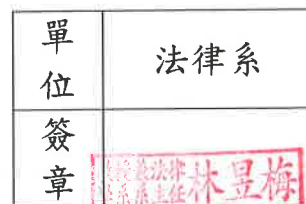 單位
法律系
簽章
法律
系主任
林昱梅